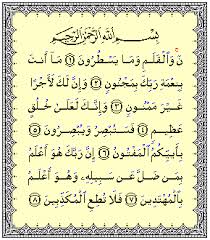 بِسْمِ اللَّهِ الرَّحْمَٰنِ الرَّحِيمِ
نٓ وَالْقَلَمِ وَمَا يَسْطُرُونَ ﴿١﴾ مَا أَنتَ
بِنِعْمَةِ رَبِّكَ بِمَجْنُونٍ ﴿٢﴾ وَإِنَّ لَكَ لَأَجْرًا
غَيْرَ مَمْنُونٍ ﴿٣﴾ وَإِنَّكَ لَعَلَىٰ خُلُقٍ
عَظِيمٍ ﴿٤﴾ فَسَتُبْصِرُ وَيُبْصِرُونَ ﴿٥﴾
بِأَييِّكُمُ الْمَفْتُونُ ﴿٦﴾ إِنَّ رَبَّكَ هُوَ أَعْلَمُ
بِمَن ضَلَّ عَن سَبِيلِهِ وَهُوَ أَعْلَمُ
بِالْمُهْتَدِينَ ﴿٧﴾ فَلَا تُطِعِ الْمُكَذِّبِينَ ﴿٨﴾